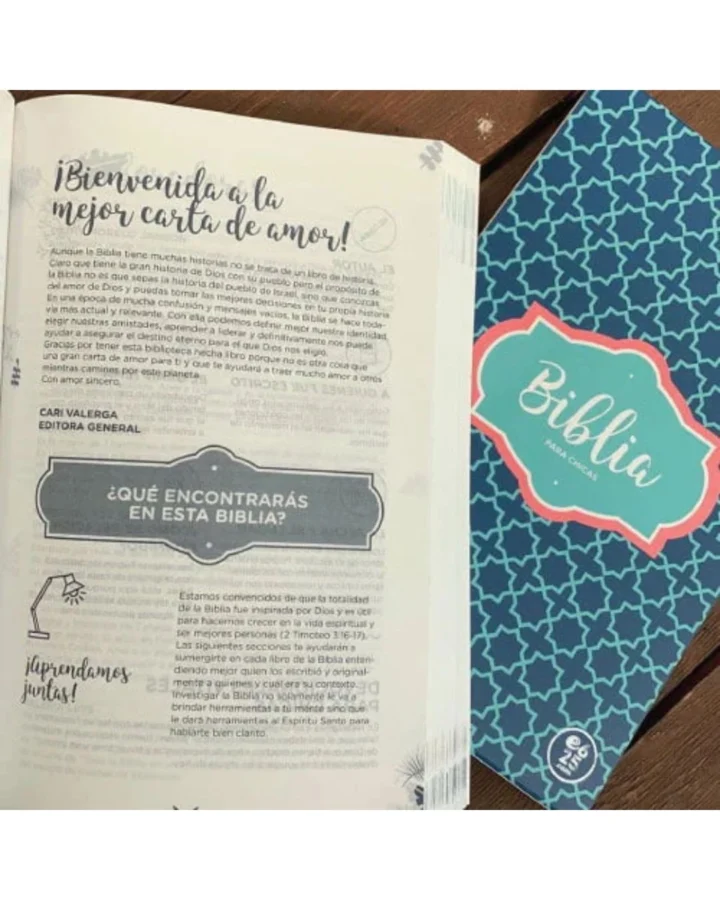 ¡Bienvenida a la
mejor carta de amor!
Aunque la Biblia tiene muchas historias no se trata de un libro de historia.
Claro que tiene la gran historia de Dios con su pueblo pero el propósito de
la Biblia no es que sepas la historia del pueblo de Israel, sino que conozcas
del amor de Dios y puedas tomar las mejores decisiones en tu propia historia
En una época de mucha confusión y mensajes vacíos, la Biblia se hace toda-
vía más actual y relevante. Con ella podemos definir mejor nuestra identidad,
elegir nuestras amistades, aprender a liderar y definitivamente nos puede
ayudar a asegurar el destino eterno para el que Dios nos eligió.
Gracias por tener esta biblioteca hecha libro porque no es otra cosa que
una gran carta de amor para ti y que te ayudará a traer mucho amor a otros
mientras camines por este planeta.
Con amor sincero,
CARI VALERGA
EDITORA GENERAL
¿QUÉ ENCONTRARÁS
EN ESTA BIBLIA?
¡Aprendamos
juntas!
Estamos convencidos de que la totalidad
de la Biblia fue inspirada por Dios y es útil
para hacernos crecer en la vida espiritual y
ser mejores personas (2 Timoteo 3:16-17).
Las siguientes secciones te ayudarán a
sumergirte en cada libro de la Biblia enten-
diendo mejor quien los escribió y original-
mente a quienes y cuál era su contexto.
Investigar la Biblia no solamente le va a
brindar herramientas a tu mente sino que
le dará herramientas al Espíritu Santo para
hablarte bien clarito.
Biblia
PARA CHICAS